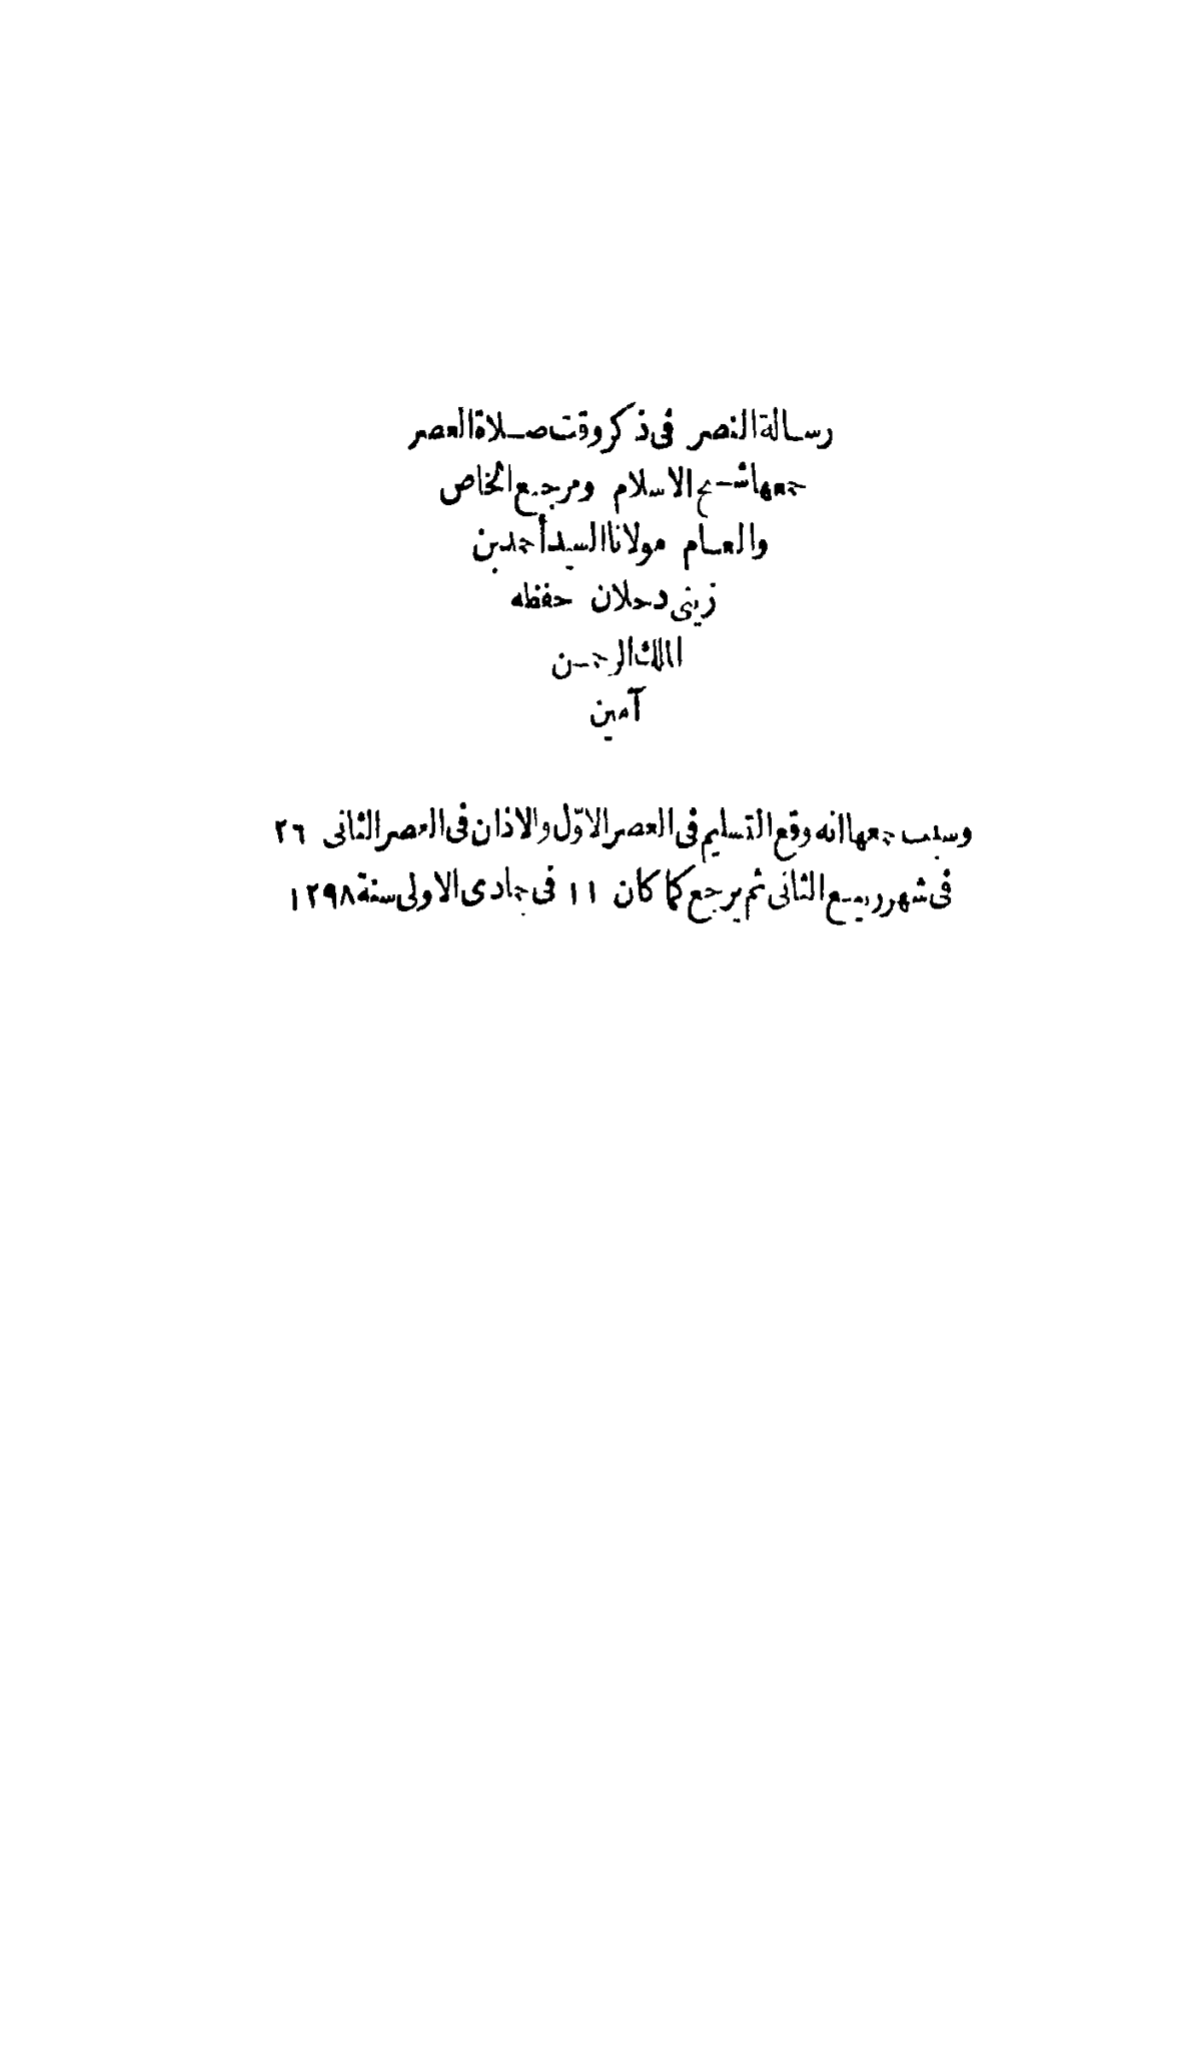 رسالة النصر فى ذكر وقت صلاة العصر
جمعها شيخ الاسلام ومرجع الخاص
والعام مولانا السيد أحمد بن
زينى دحلان حفظه
الملك الرحمن
آمين
وسبب جمعها انه وقع التسليم فى العصر الاوّل والاذان فى العصر الثانى ٢٦
فى شهر ربيع الثانى ثم يرجع كما كان ١١ فى جمادى الاولى سنة ١٢٩٨